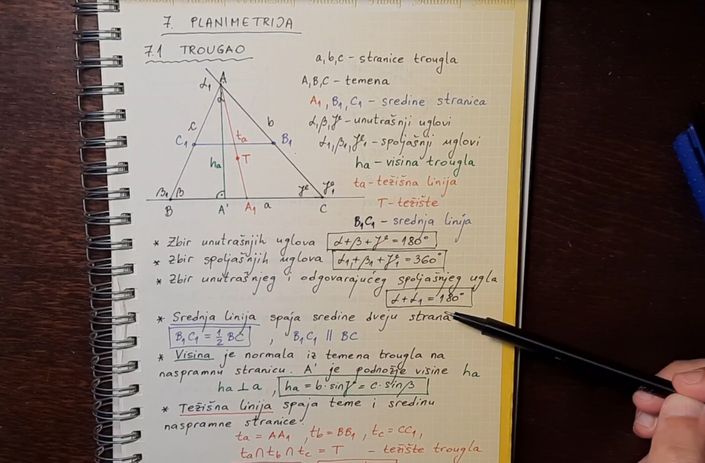 7. PLANIMETRIJA
7.1 TROUGAO
a, b, c - stranice trougla
A, B, C - temena
A₁, B₁, C₁ - sredine stranica
α, β, γ - unutrašnji uglovi
α₁, β₁, γ₁ - spoljašnji uglovi
ha - visina trougla
ta - težišna linija
T - težište
B₁C₁ - srednja linija
α₁ A
α
c b
C₁ ta B₁
ha T
β₁ β γ γ₁
B A' A₁ a C
* Zbir unutrašnjih uglova α+β+γ=180°
* Zbir spoljašnjih uglova α₁+β₁+γ₁=360°
* Zbir unutrašnjeg i odgovarajućeg spoljašnjeg ugla
α+α₁=180°
* Srednja linija spaja sredine dveju strana
B₁C₁ = 1/2 BC , B₁C₁ || BC
* Visina je normala iz temena trougla na
naspramnu stranicu. A' je podnožje visine ha
ha ⊥ a , ha = b·sinγ = c·sinβ
* Težišna linija spaja teme i sredinu
naspramne stranice.
ta = AA₁ , tb = BB₁ , tc = CC₁ ,
ta ∩ tb ∩ tc = T - težište trougla